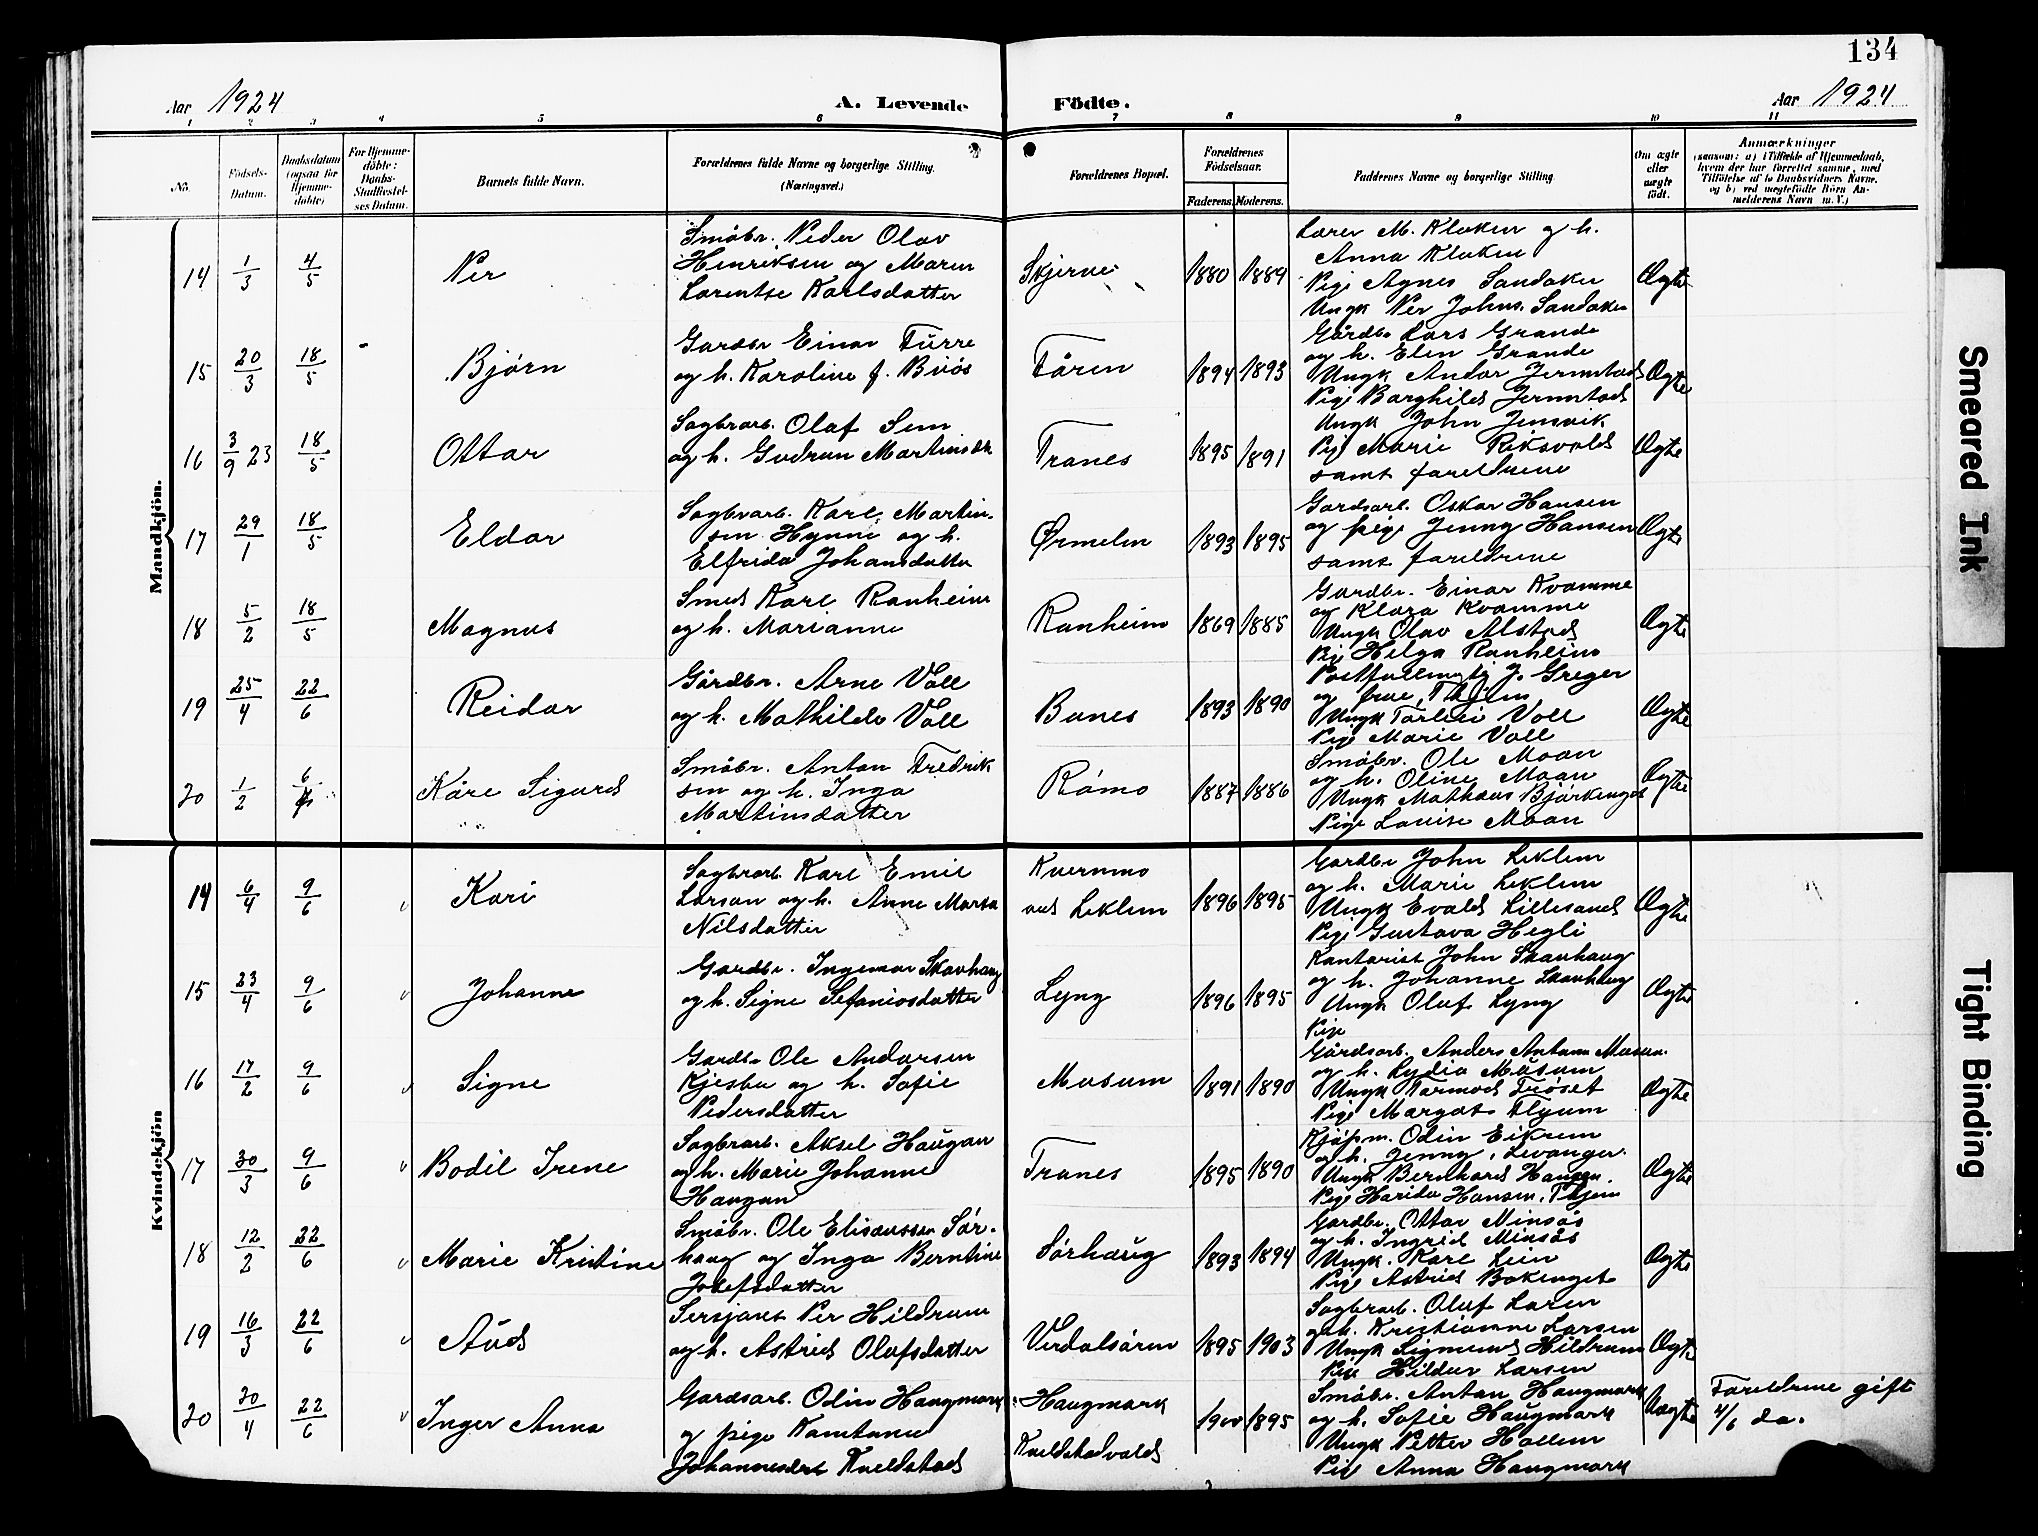 134
Aar 1924 A. Levende Födte. Aar 1924
1 2 3 4 5 6 7 8 9 10 11
No. Födsels-Datum. Daabsdatum (ogsaa for Hjemme-döbte) For Hjemme-döbte: Daabs-Stadfæstel-ses Datum. Barnets fulde Navn. Forældrenes fulde Navne og borgerlige Stilling. (Næringsvei.) Forældrenes Bopæl. Forældrenes Födselsaar. Faderens. Moderens. Faddernes Navne og borgerlige Stilling. Om ægte eller uægte födt. Anmærkninger (saasom: a) i Tilfælde af Hjemmedaab, hvem der har forrettet samme, med Tilföielse af to Daabsvidners Navne, og b) ved uægtefödte Börn An-melderens Navn m.V.)
Mandkjön.
14 1/3 4/5 Per Småbr. Peder Olav Henriksen og Maren Lorentse Karlsdatter Skjerve 1880 1889 Lærer M. Kloken og h. Anna Kloken Pige Agnes Sandaker Ungk Per Johns. Sandaker Ægte
15 20/3 18/5 Bjørn Gardbr Einar Furre og h. Karoline f. Buås Fåren 1894 1893 Gårdbr Lars Grande og h. Elen Grande Ungk Andor Jermstad Pige Borghild Jermstad Ægte
16 3/9 23 18/5 Ottar Sagbrarb. Olaf Sem og h. Gudrun Martinsdtr Tranes 1895 1891 Ungk John Jensvik Pige Marie Riksvold samt foreldrene Ægte
17 29/1 18/5 Eldor Sagbrarb. Karl Martinsen Hynne og h. Elfrida Johansdatter Ørmelen 1893 1895 Gardsarb. Oskar Hansen og pige Jenny Hansen samt foreldrene Ægte
18 5/2 18/5 Magnus Smed Karl Ranheim og h. Marianne Ranheim 1869 1885 Gardbr. Einar Kvamme og Klara Kvamme Ungk Olav Alstad Pig Helga Ranheim Ægte
19 25/4 22/6 Reidar Gårdbr. Arne Voll og h. Mathilde Voll Banes 1893 1890 Postfullmektig J. Greger og frue, Thjem Ungk Torleif Voll Pige Marie Voll Ægte
20 1/2 6/ Kåre Sigurd Småbr. Anton Fredriksen og h. Inga Martinsdatter Råmo 1887 1886 Småbr. Ole Moan og h. Oline Moan Ungk Mathæus Bjørkenget Pige Louise Moan Ægte
Kvindekjön
14 6/4 9/6 Kari Sagbrarb. Karl Emil Larsen og h. Anne Marta Nilsdatter Kvernmo ved Leklem 1896 1895 Gardbr John Leklem og h. Marie Leklem Ungk Evald Lillesand Pige Gustava Hegli Ægte
15 23/4 9/6 Johanne Gardbr. Ingemar Skavhaug og h. Signe Stefaniasdatter Lyng 1896 1895 Kontorist John Skavhaug og h. Johanne Skavhaug Ungk Olaf Lyng Pige Ægte
16 17/2 9/6 Signe Gardbr Ole Andersen Kjesbu og h. Sofie Pedersdatter Mosum 1891 1890 Gårdsarb. Anders Antonn Mosum og h. Lydia Mosum Ungk Tormod Trøset Pige Margot Flyum Ægte
17 30/3 9/6 Bodil Irene Sagbrarb. Aksel Haugan og h. Marie Johanne Haugan Tranes 1895 1890 Kjøpm. Odin Eikrem og h. Jenny, Levanger. Ungk Bernhard Hansen. Pige Harida Hansen, Thjem Ægte
18 12/2 22/6 Marie Kristine Småbr. Ole Elisæussen Sørhaug og Inga Berntine Josefsdatter Sørhaug 1893 1894 Gardbr. Ottar Minsås og h. Ingrid Minsås Ungk. Karl Lein Pige Astrid Bokenget Ægte
19 16/3 22/6 Aud Sersjant Per Hildrum og h. Astrid Olafsdatter Verdalsøren 1895 1903 Sagbrarb. Olaf Larsen og h. Kristianne Larsen Ungk Sigmund Hildrum Pige Hildur Larsen Ægte
20 20/4 22/6 Inger Anna Gardsarb. Odin Haugmark og pige Konstanse Johannesdtr Kveldstad Haugmark Kveldstadvald 1900 1895 Småbr. Anton Haugmark og h. Sofie Haugmark Ungk Petter Hallem Pige Anna Haugmark Uægte Foreldrene gift 4/6 da.
Smeared Ink
Tight Binding